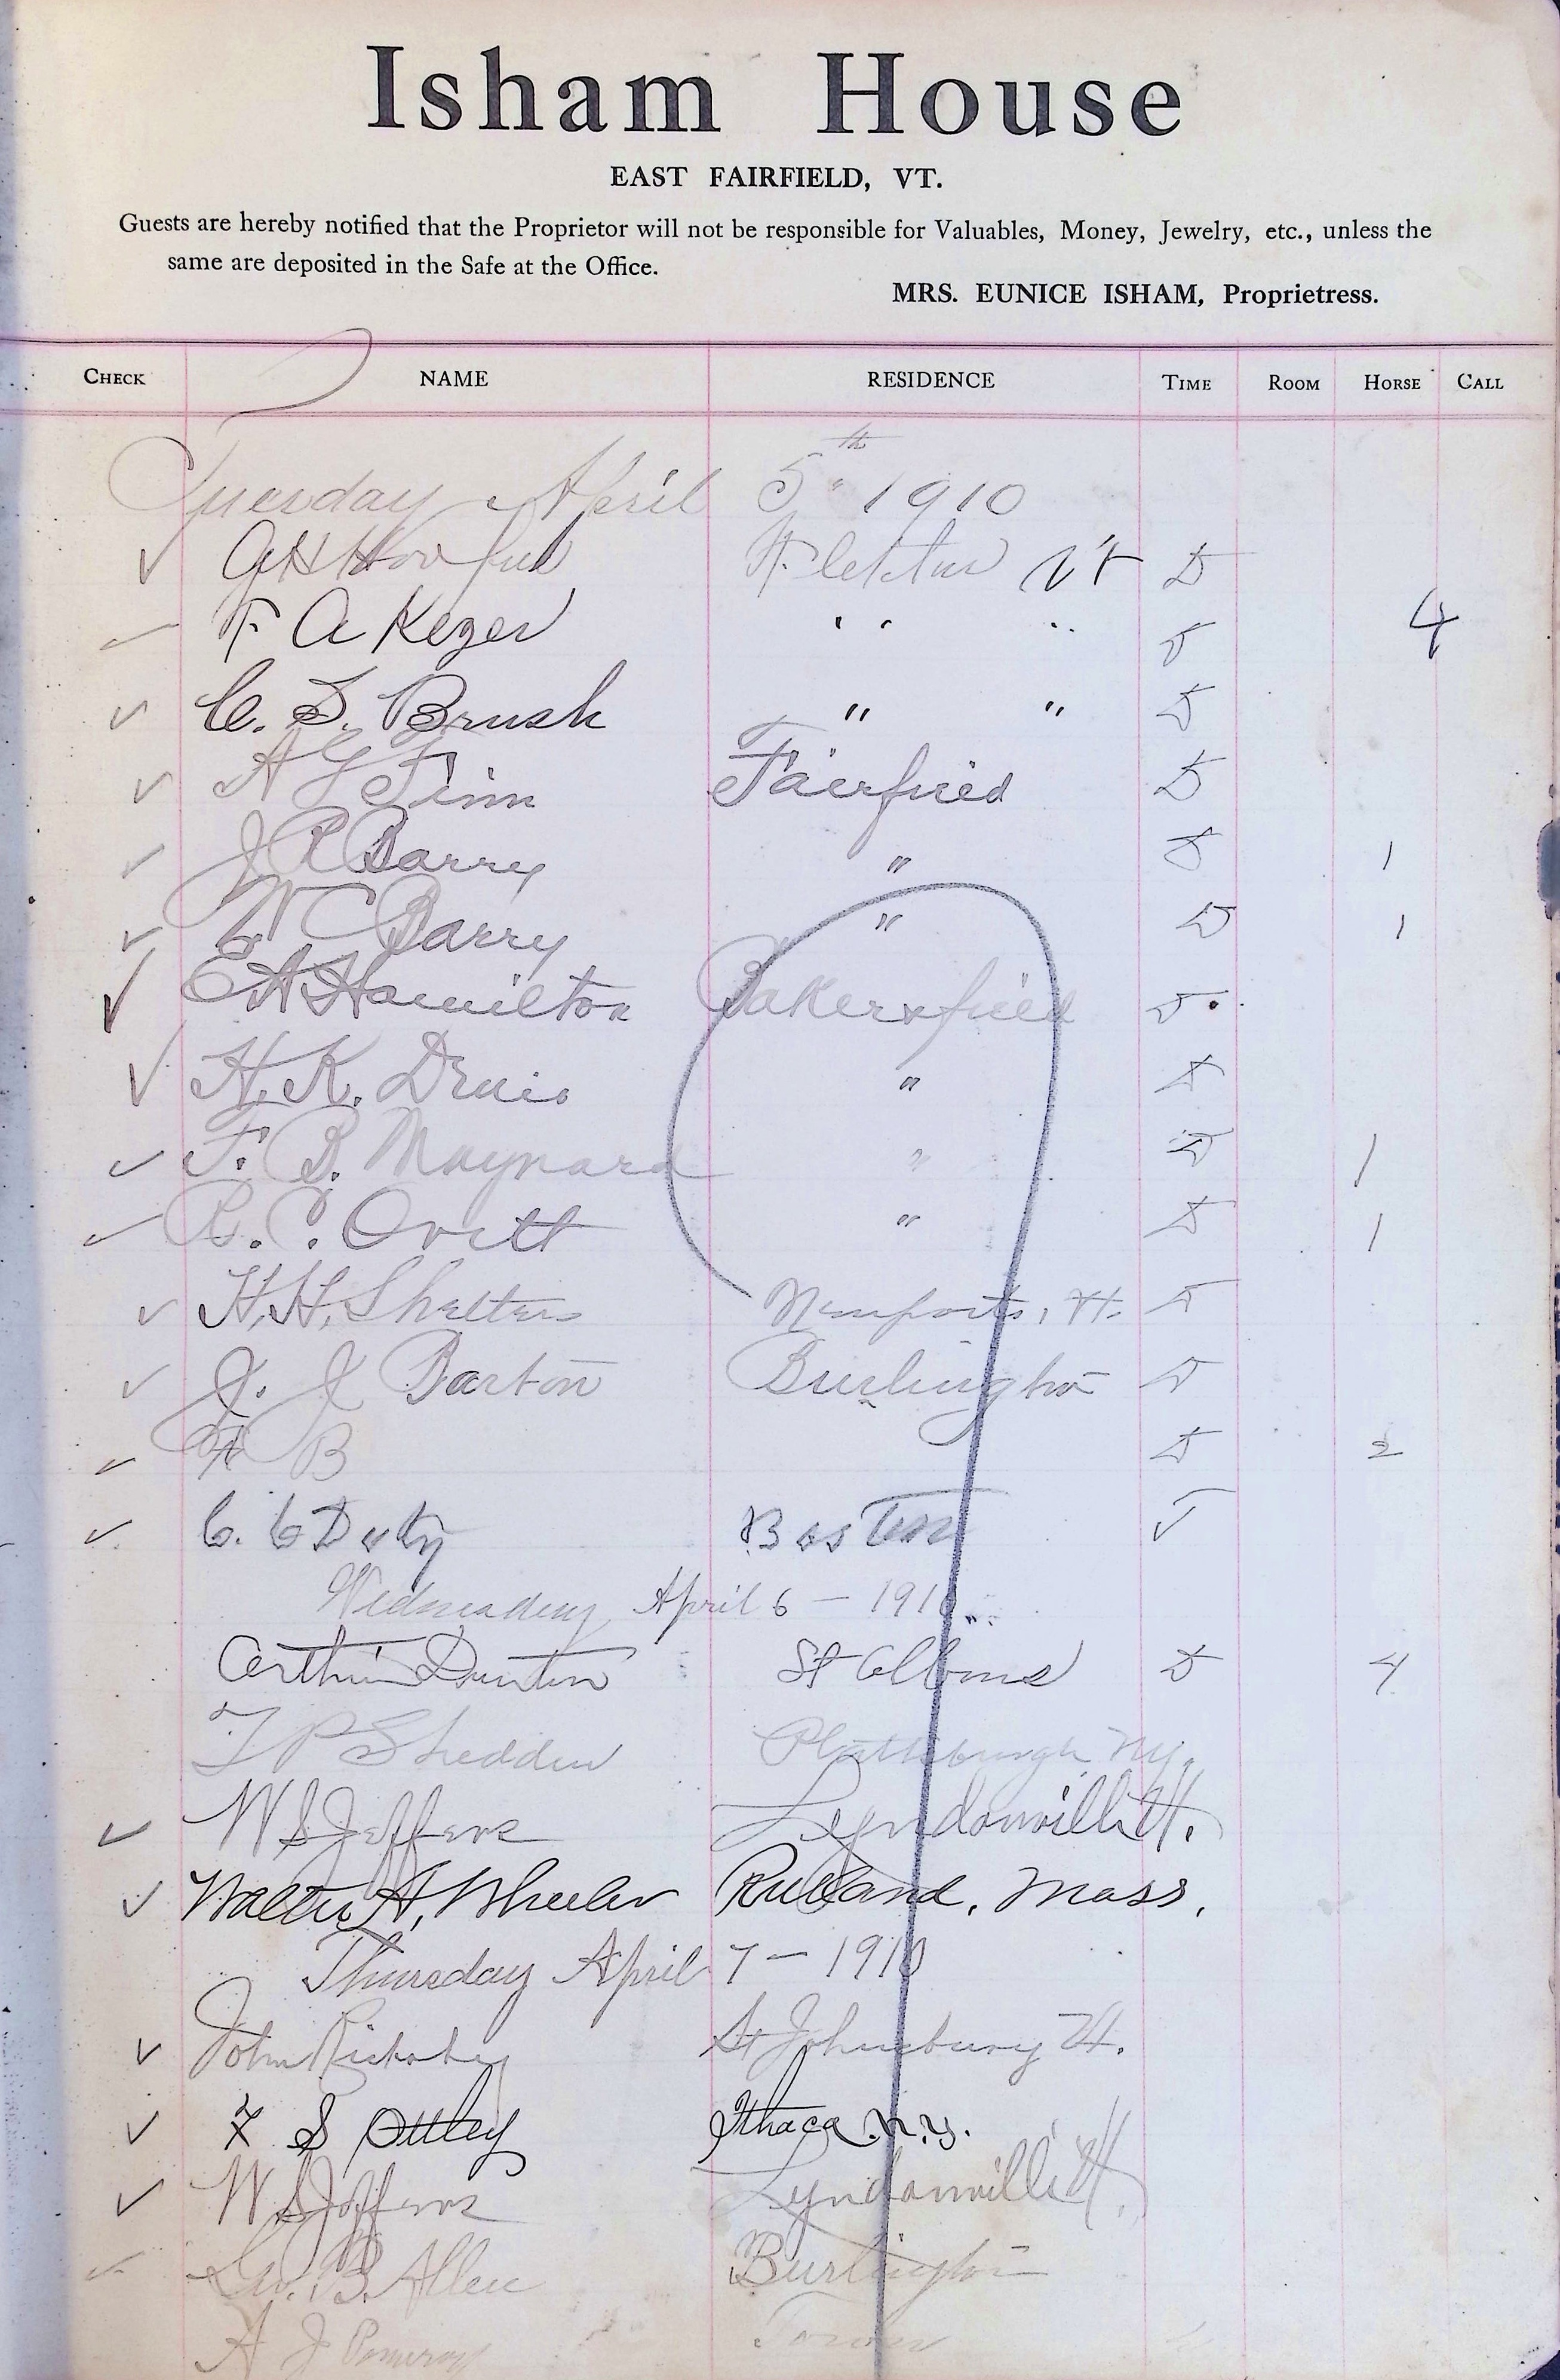 Isham House
EAST FAIRFIELD, VT.
Guests are hereby notified that the Proprietor will not be responsible for Valuables, Money, Jewelry, etc., unless the
same are deposited in the Safe at the Office.
MRS. EUNICE ISHAM, Proprietress.
CHECK NAME RESIDENCE TIME ROOM HORSE CALL
Tuesday April 5th 1910
✓ Fletcher Vt D
✓ F. A Kezer " " D 4
✓ C. S. Brush " " D
✓ A G Finn Fairfield D
✓ J R Barry " D 1
✓ W C Barry " D 1
✓ E A Hamilton Bakersfield D
✓ H. K. " D
✓ F. B. Maynard " D 1
✓ R. C. Ovitt " D 1
✓ H. H. Shelters Newport, Vt. D
✓ J. J Barton Burlington D
✓ B D 2
✓ C. C Duty Boston
Wednesday April 6 - 1910
Arthur Dunton St Albans D 4
T P Shedden Plattsburgh N.Y.
✓ W S Jeffers Lyndonville Vt.
✓ Walter A. Wheeler Rutland, Mass.
Thursday April 7 - 1910
✓ John St Johnsbury Vt.
✓ F S Ottley Ithaca N.Y.
✓ W S Jeffers Lyndonville Vt.
✓ Geo. B. Allen Burlington
A J Pomeroy Town